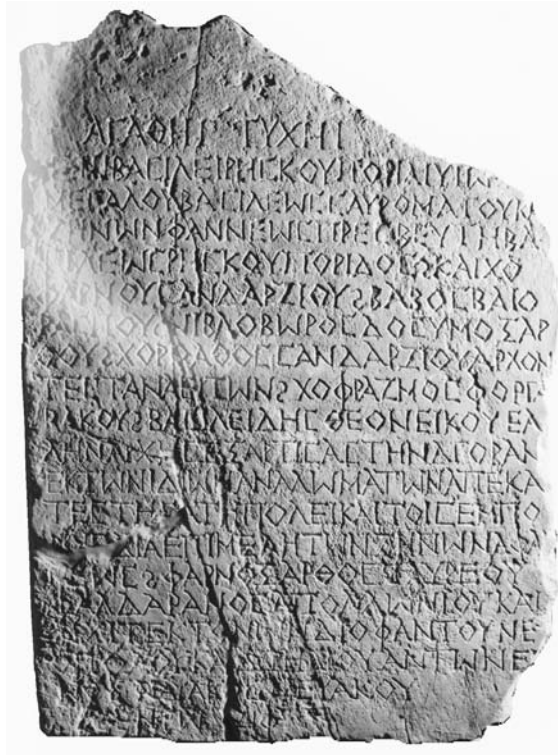 ΑΓΑΘΗΙ ΤΥΧΗΙ
ΒΑΣΙΛΕΙ ΡΗΣΚΟΥΠΟΡΙΔΙ ΥΙΩ
ΜΕΓΑΛΟΥ ΒΑΣΙΛΕΩΣ ΣΑΥΡΟΜΑΤΟΥ Κ
ΖΗΝΩΝ ΦΑΝΝΕΩΣ ΠΡΕΣΒΕΥΤΗ ΒΑ
ΣΙΛΕΩΣ ΡΗΣΚΟΥΠΟΡΙΔΟΣ Ϛ ΚΑΙ ΧΟ
ΦΑΡΝΟΥ ΣΑΝΔΑΡΖΙΟΥ Ϛ ΒΑΒΟΣ ΒΑΙΟ
ΡΑΣΠΟΥ Ϛ ΝΙΒΛΟΒΩΡΟΣ ΔΟΣΥΜΟΞΑΡ
ΘΟΥ Ϛ ΧΟΡΟΑΘΟΣ ΣΑΝΔΑΡΖΙΟΥ ΑΡΧΟΝ
ΤΕΣ ΤΑΝΑΕΙΤΩΝ Ϛ ΧΟΦΡΑΖΜΟΣ ΦΟΡΓΑ
ΒΑΚΟΥ Ϛ ΒΑΣΙΛΕΙΔΗΣ ΘΕΟΝΕΙΚΟΥ ΕΛ
ΛΗΝΑΡΧΗΣ ΕΞΑΡΤΙΣΑΣ ΤΗΝ ΑΓΟΡΑΝ
ΕΚ ΤΩΝ ΙΔΙΩΝ ΑΝΑΛΩΜΑΤΩΝ ΑΠΕΚΑ
ΤΕΣΤΗΣΑ ΤΗ ΠΟΛΕΙ ΚΑΙ ΤΟΙΣ ΕΝΠΟ
ΡΟΙΣ ΔΙΑ ΕΠΙΜΕΛΗΤΩΝ ΖΗΝΩΝΑ ΦΑ
ΝΝΕΩΣ Ϛ ΦΑΡΝΟΞΑΡΘΟΣ ΤΑΥΡΕΟΥ
ΦΑΛΔΑΡΑΝΟΣ ΑΠΟΛΛΩΝΙΟΥ ΚΑΙ
ΔΙΟΦΑΝΤΟΥ ΝΕ
ΟΠΟΛΟΥ ΚΑΙ ΑΥΡΗΛΙΟΥ ΑΝΤΩΝΕ